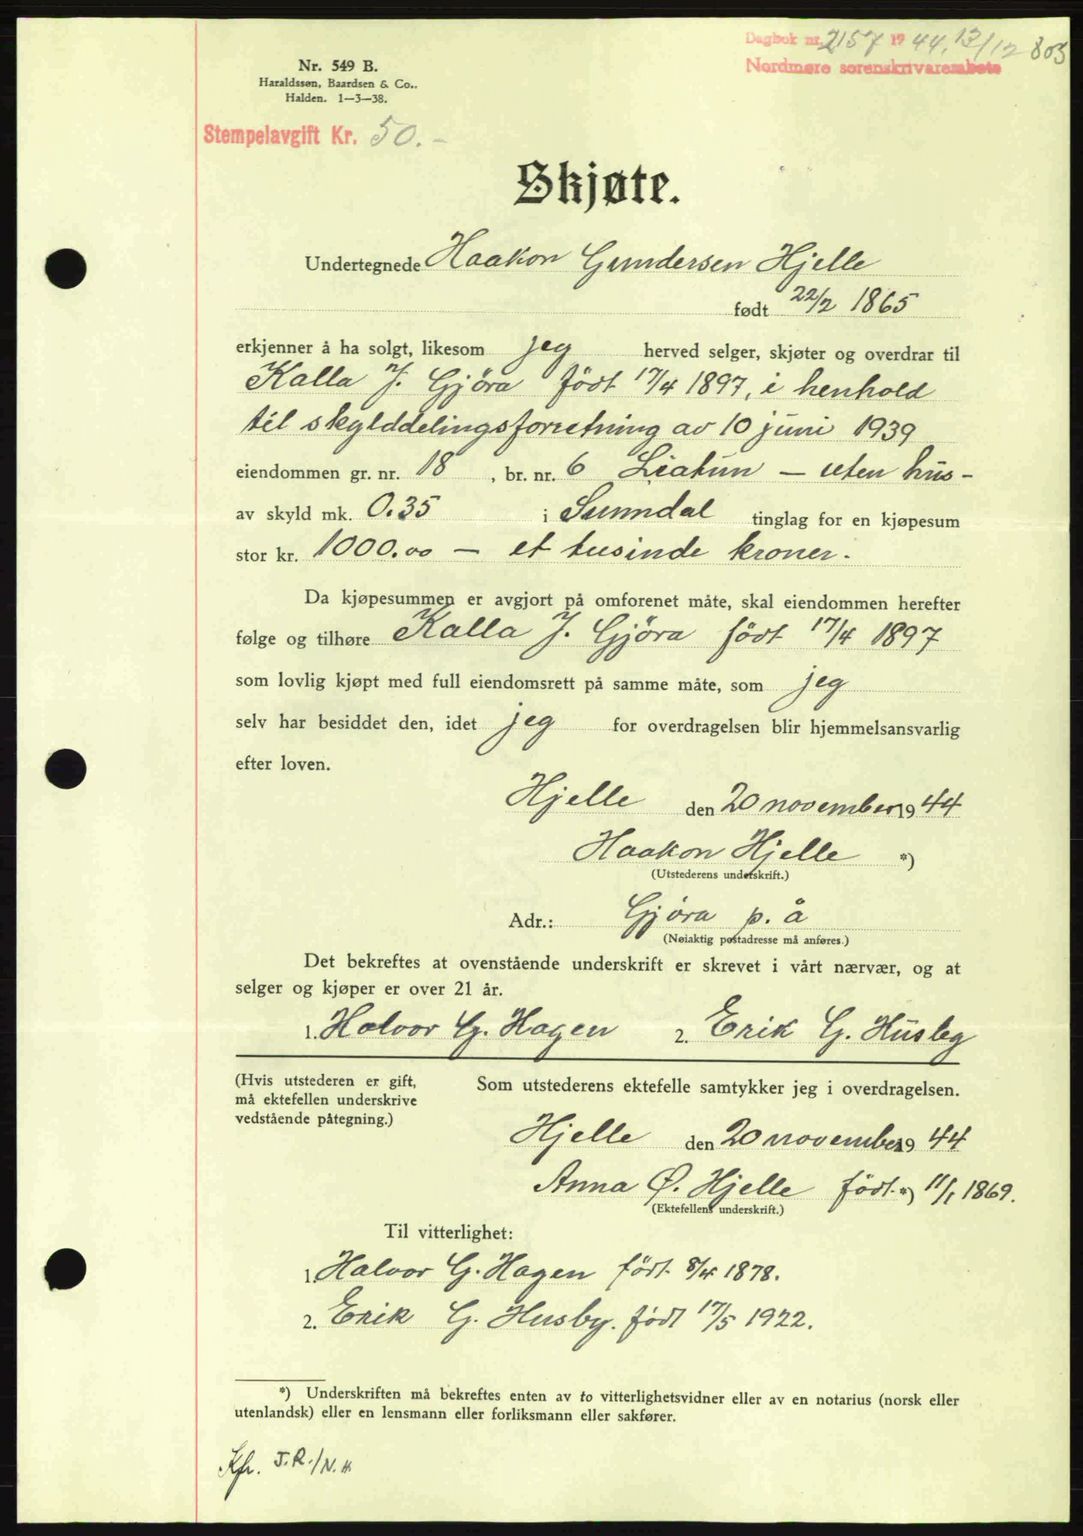 Dagbok nr. 2157 19 44, 13/12 803
Nordmøre sorenskrivarembete
Nr. 549 B.
Haraldssøn, Baardsen & Co..
Halden. 1—3—38.
Stempelavgift Kr. 50.-
Skjøte.
Undertegnede Haakon Gundersen Hjelle
født 22/2 1865
erkjenner å ha solgt, likesom jeg herved selger, skjøter og overdrar til
Kalla J. Gjöra födt 17/4 1897, i henhold
til skylddelingsforretning av 10 juni 1939
eiendommen gr. nr. 18, br. nr. 6 Liatun — uten hus -
av skyld mk. 0.35 i Sunndal tinglag for en kjøpesum
stor kr. 1000.00 — et tusinde kroner.
Da kjøpesummen er avgjort på omforenet måte, skal eiendommen herefter
følge og tilhøre Kalla J. Gjöra födt 17/4 1897
som lovlig kjøpt med full eiendomsrett på samme måte, som jeg
selv har besiddet den, idet jeg for overdragelsen blir hjemmelsansvarlig
efter loven.
Hjelle den 20 november 1944
Haakon Hjelle *)
(Utstederens underskrift.)
Adr.: Gjöra p. å
(Nøiaktig postadresse må anføres.)
Det bekreftes at ovenstående underskrift er skrevet i vårt nærvær, og at
selger og kjøper er over 21 år.
1. Halvor G. Hagen 2. Erik G. Husby
(Hvis utstederen er gift,
må ektefellen underskrive
vedstående påtegning.)
Som utstederens ektefelle samtykker jeg i overdragelsen.
Hjelle den 20 november 1944
Anna Ø. Hjelle födt *) 11/1 1869.
(Ektefellens underskrift.)
Til vitterlighet:
1. Halvor G. Hagen födt 8/4 1878.
2. Erik G. Husby. födt 17/5 1922.
*) Underskriften må bekreftes enten av to vitterlighetsvidner eller av en notarius (norsk eller
utenlandsk) eller en lensmann eller forliksmann eller sakfører.
Kfr. J.R./N.H.